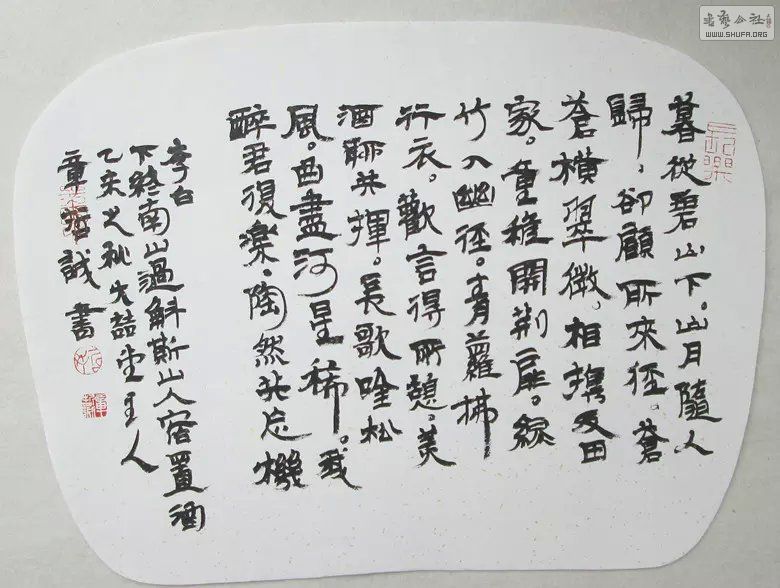 暮從碧山下。山月隨人
歸，卻顧所來徑。蒼
蒼橫翠微。相攜及田
家。童稚開荆扉。綠
竹入幽徑。青蘿拂
行衣。歡言得所憩。美
酒聊共揮。長歌吟松
風。曲盡河星稀。我
醉君復樂，陶然共忘機
李白
下終南山過斛斯山人宿置酒
乙未之秋喆堂主人
章誠書
書藝公社
WWW.SHUFA.ORG